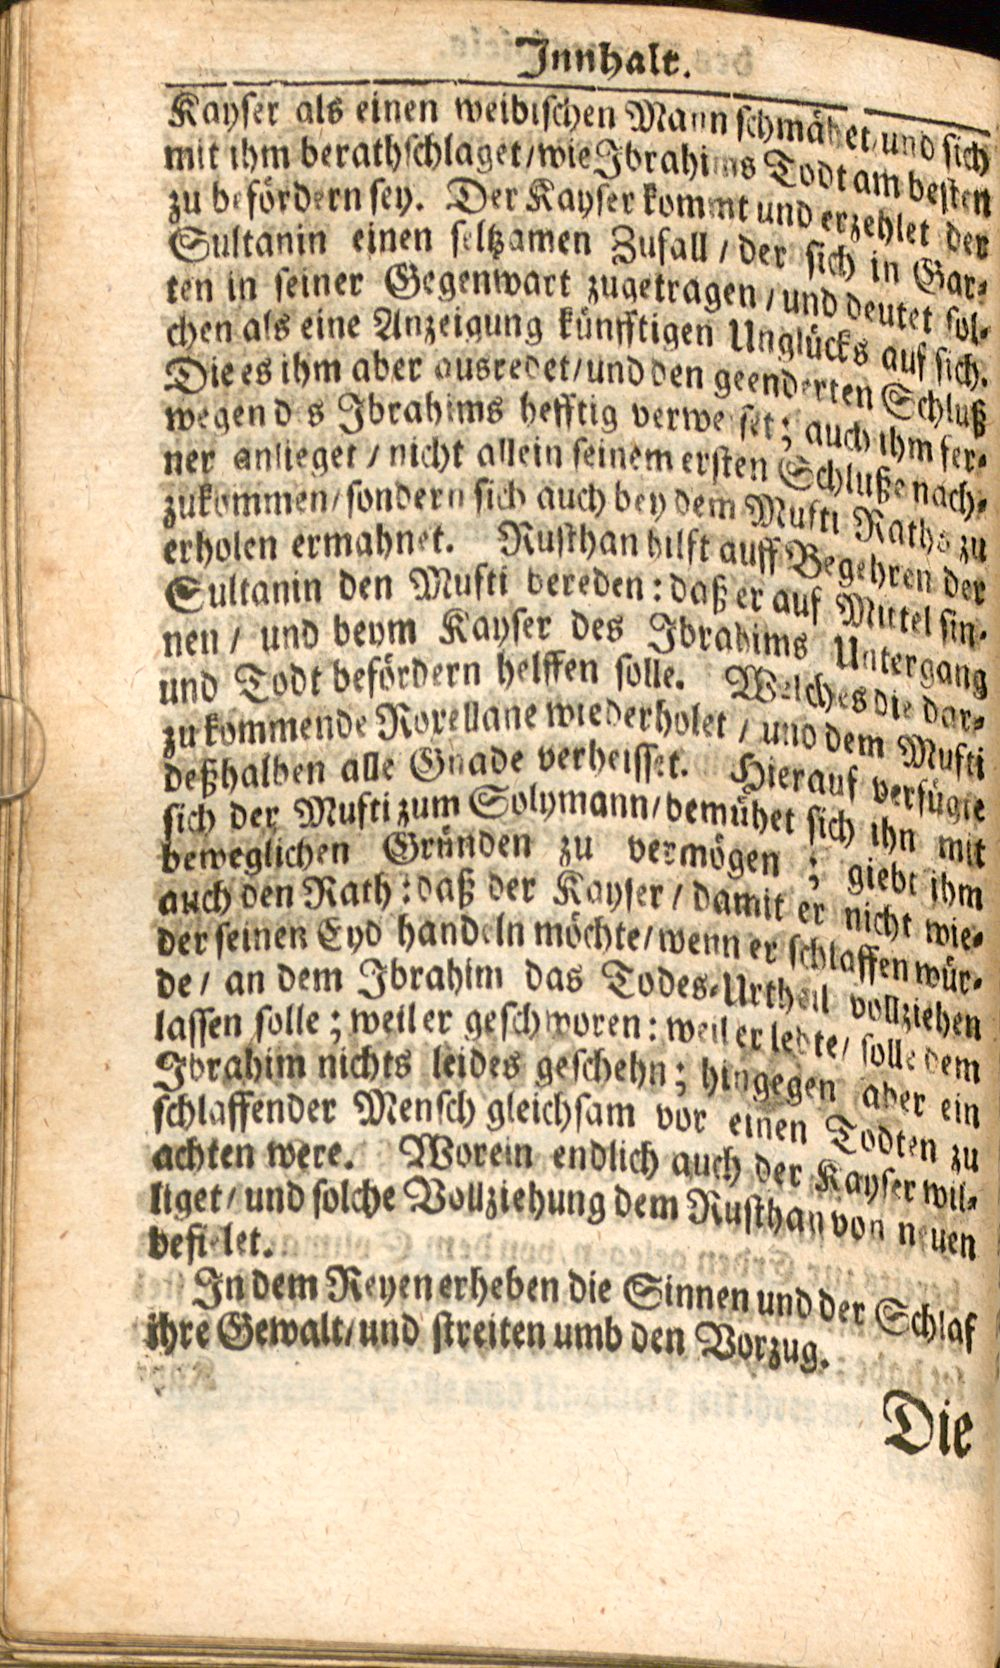 Innhalt.
Kayser als einen weibischen Mann schmähet/und sich
mit ihm berathschlaget/wie Ibrahims Todt am besten
zu befördern sey. Der Kayser kommt und erzehlet der
Sultanin einen seltzamen Zufall / der sich in Gar-
ten in seiner Gegenwart zugetragen / und deutet sol-
chen als eine Anzeigung künfftigen Unglücks auf sich.
Die es ihm aber ausredet/und den geenderten Schluß
wegen des Ibrahims hefftig verweiset; auch ihm fer-
ner anlieget / nicht allein seinem ersten Schluße nach-
zukommen/sondern sich auch bey dem Mufti Raths zu
erholen ermahnet. Rusthan hilft auff Begehren der
Sultanin den Mufti bereden: daß er auf Mittel sin-
nen / und beym Kayser des Ibrahims Untergang
und Todt befördern helffen solle. Welches die dar-
zu kommende Roxellane wiederholet / und dem Mufti
deßhalben alle Gnade verheisset. Hierauf verfügte
sich der Mufti zum Solymann/bemühet sich ihn mit
beweglichen Gründen zu vermögen ; giebt ihm
auch den Rath: daß der Kayser / damit er nicht wie-
der seinen Eyd handeln möchte/wenn er schlaffen wür-
de / an dem Ibrahim das Todes-Urtheil vollziehen
lassen solle ; weil er geschworen: weil er lebte/ solle dem
Ibrahim nichts leides geschehn; hingegen aber ein
schlaffender Mensch gleichsam vor einen Todten zu
achten were. Worein endlich auch der Kayser wil-
liget/und solche Vollziehung dem Rusthan von neuen
befielet.
In dem Reyen erheben die Sinnen und der Schlaf
ihre Gewalt/und streiten umb den Vorzug.
Die